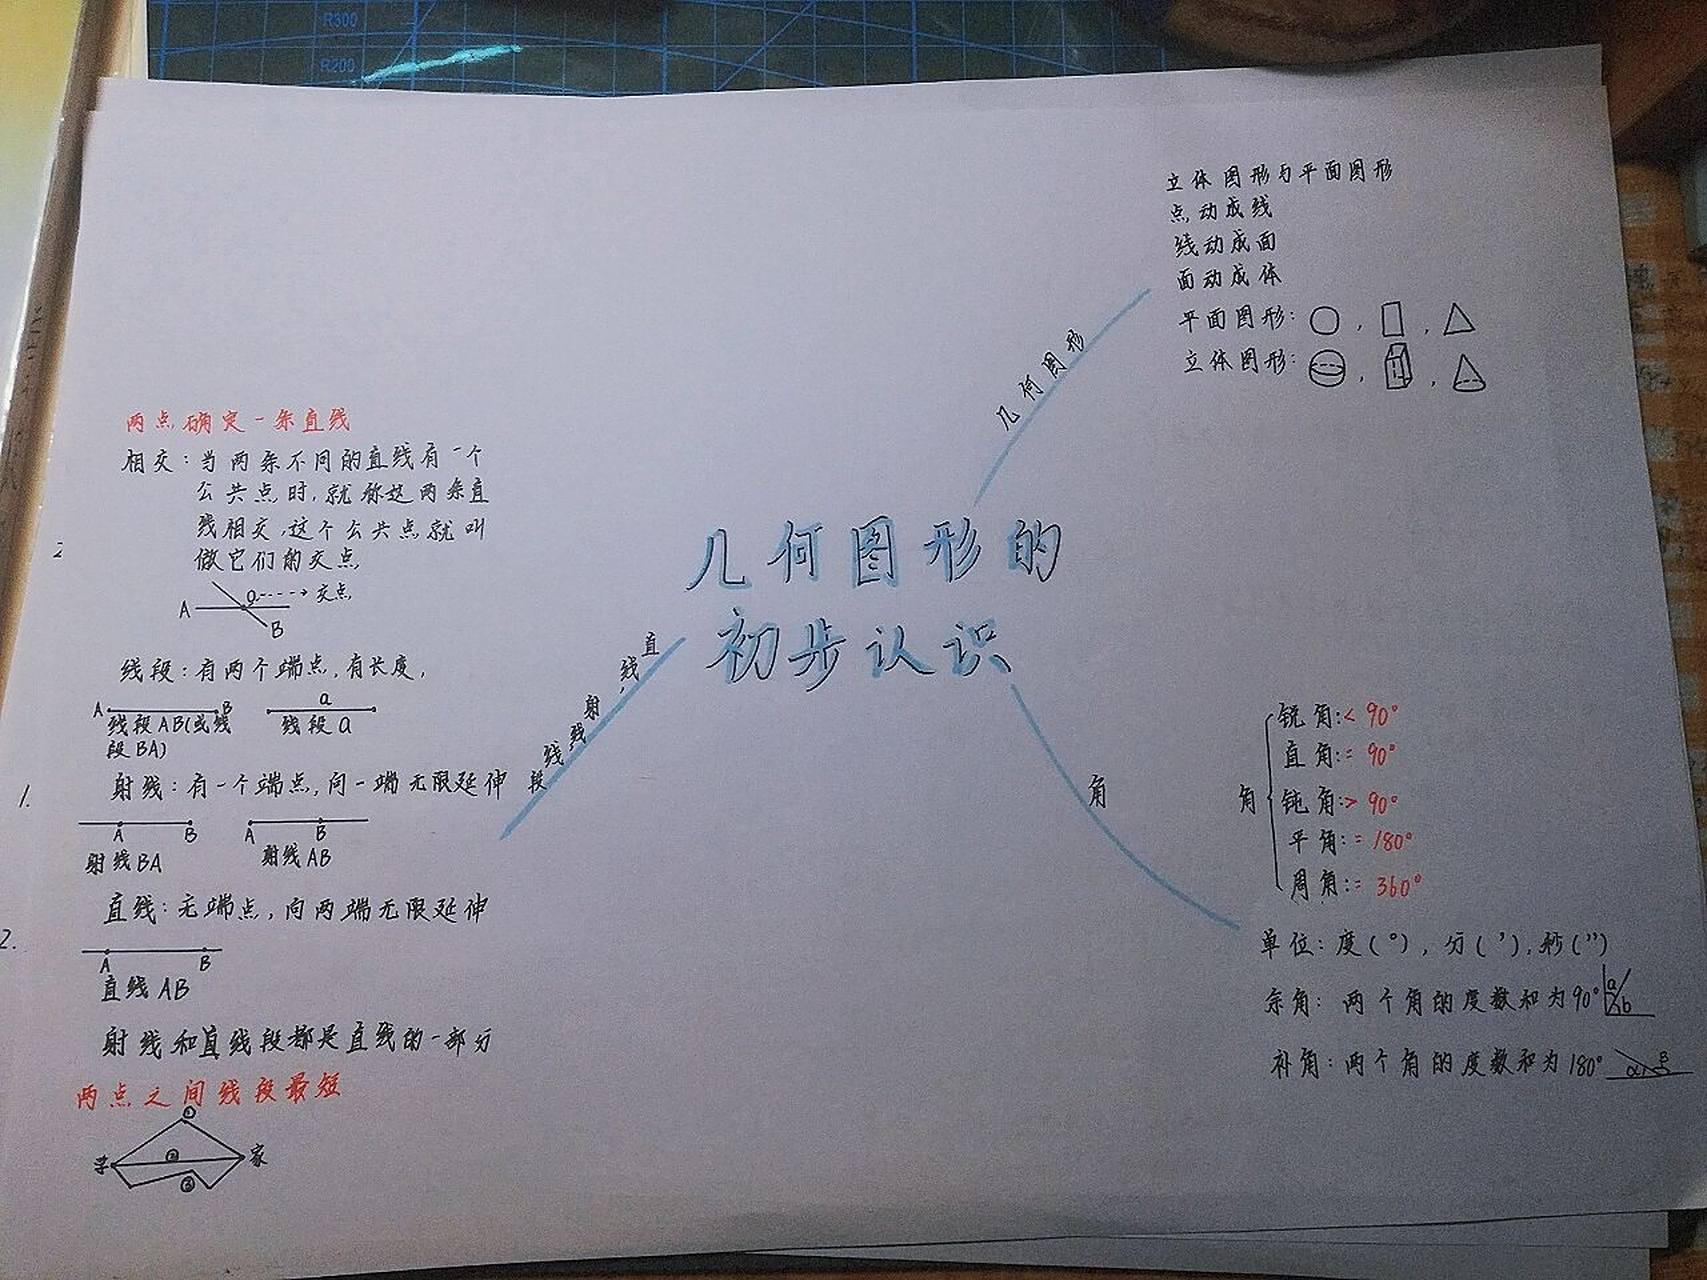 R300
R200
几何图形的
初步认识
几何图形
立体图形与平面图形
点动成线
线动成面
面动成体
平面图形: , ,
立体图形: , ,
直线,射线,线段
两点确定一条直线
相交:当两条不同的直线有一个
公共点时,就称这两条直
线相交,这个公共点就叫
做它们的交点
A O 交点
B
线段:有两个端点,有长度,
A B a
线段AB(或线 线段a
段BA)
射线:有一个端点,向一端无限延伸
A B A B
射线BA 射线AB
直线:无端点,向两端无限延伸
A B
直线AB
射线和直线段都是直线的一部分
两点之间线段最短
①
学 ② 家
③
2
1.
2.
角
角
锐角:< 90°
直角:= 90°
钝角:> 90°
平角:= 180°
周角:= 360°
单位:度(°),分('),秒('')
余角:两个角的度数和为90° a b
补角:两个角的度数和为180° α β